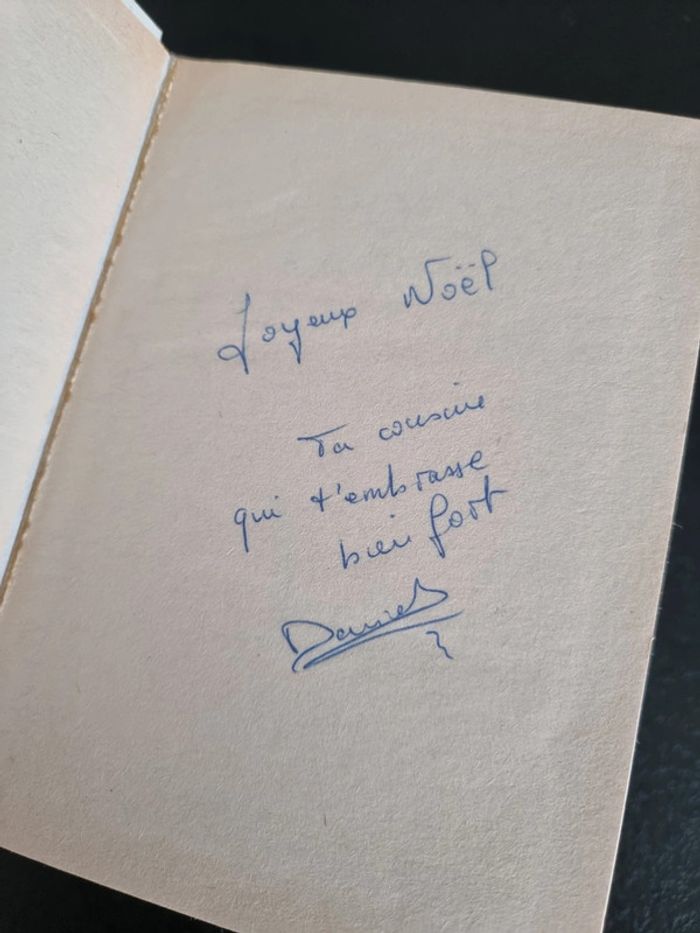 Joyeux Noël
Ta cousine
qui t'embrasse
bien fort